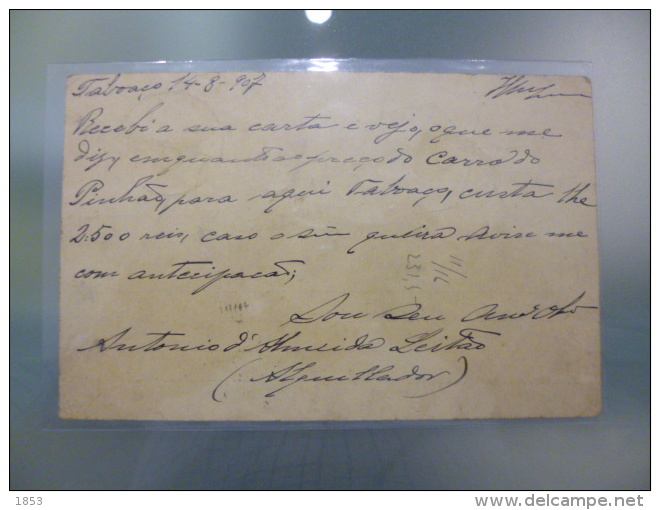 Taboaço 14-8-907 Illmo Snr
Recebi a sua carta e vejo, o que me
diz, emquanto ao preço do Carro do
Pinhão, para aqui Taboaço, custa lhe
2.500 reis, caso o snr queira avise me
com antecipacão;
Sou seu
Antonio d'Almeida Leitão
(Alquillador)
1853
www.delcampe.net